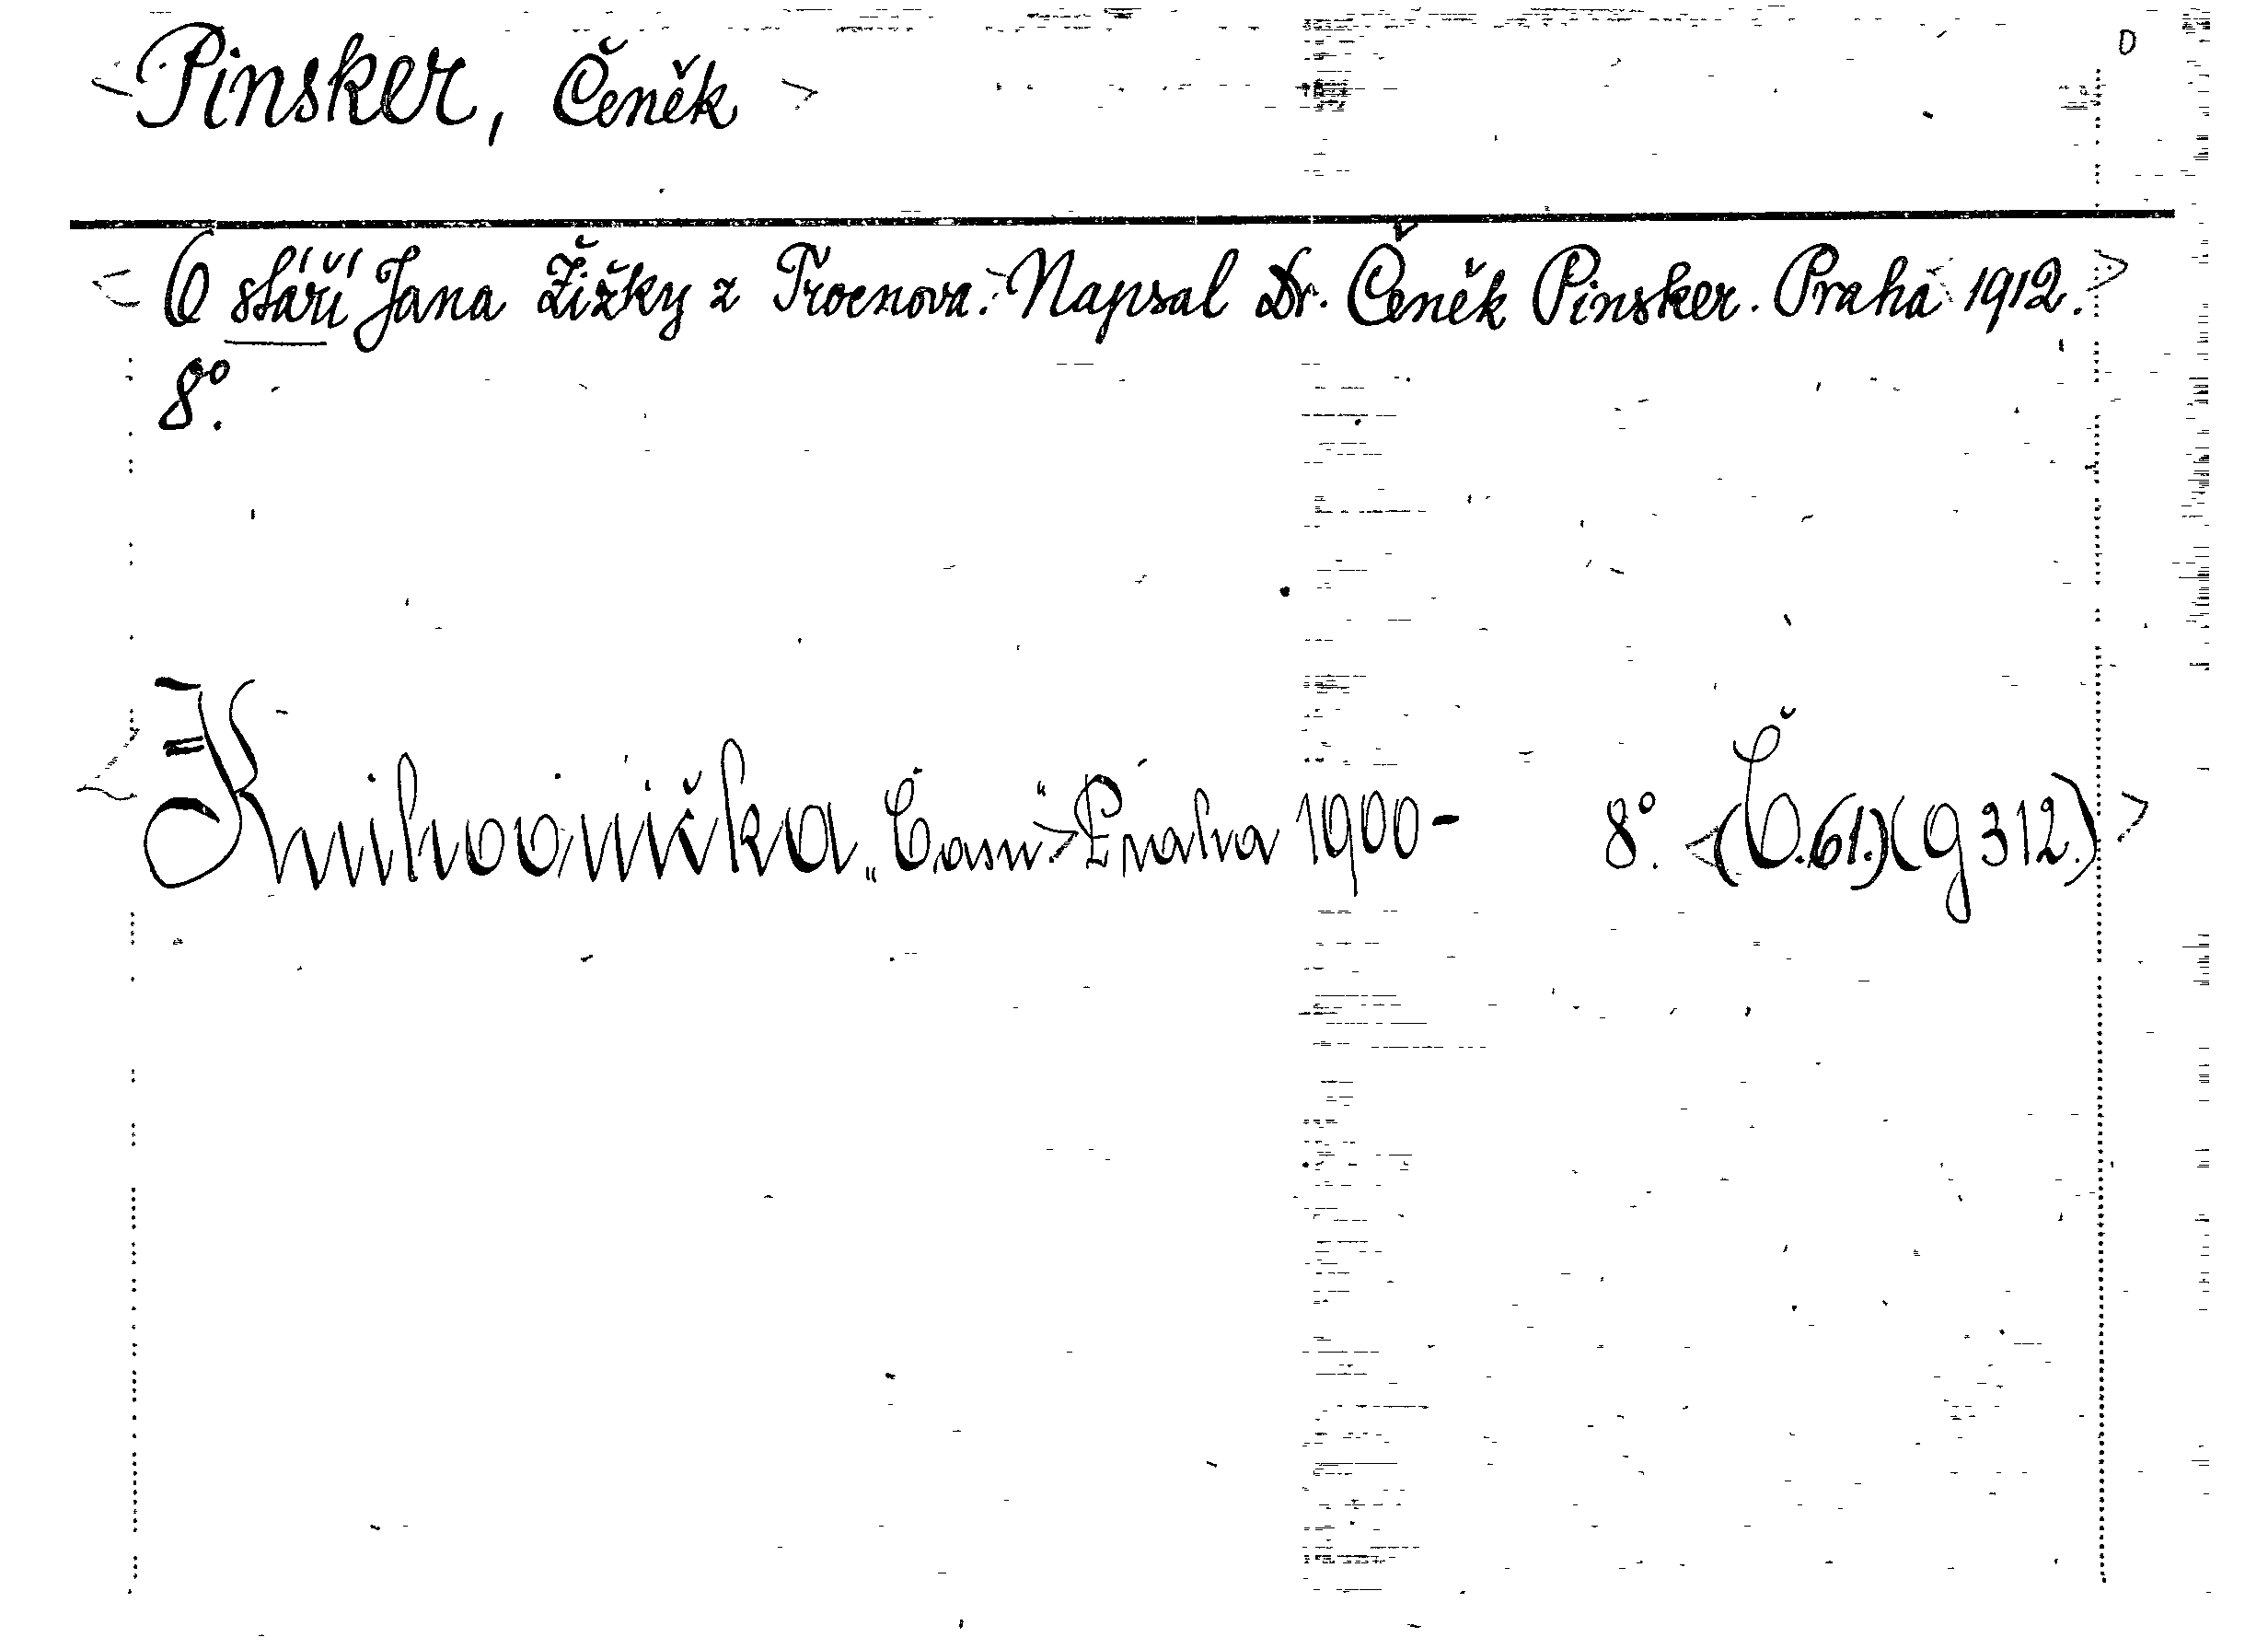 <Pinsker, Čeněk> D
<O stáří Jana Žižky z Trocnova.> Napsal Dr. Čeněk Pinsker. Praha 1912.>
8°.
<Knihovnička „Času“> Praha 1900- 8°. <(Č.61.)(g 312.)>